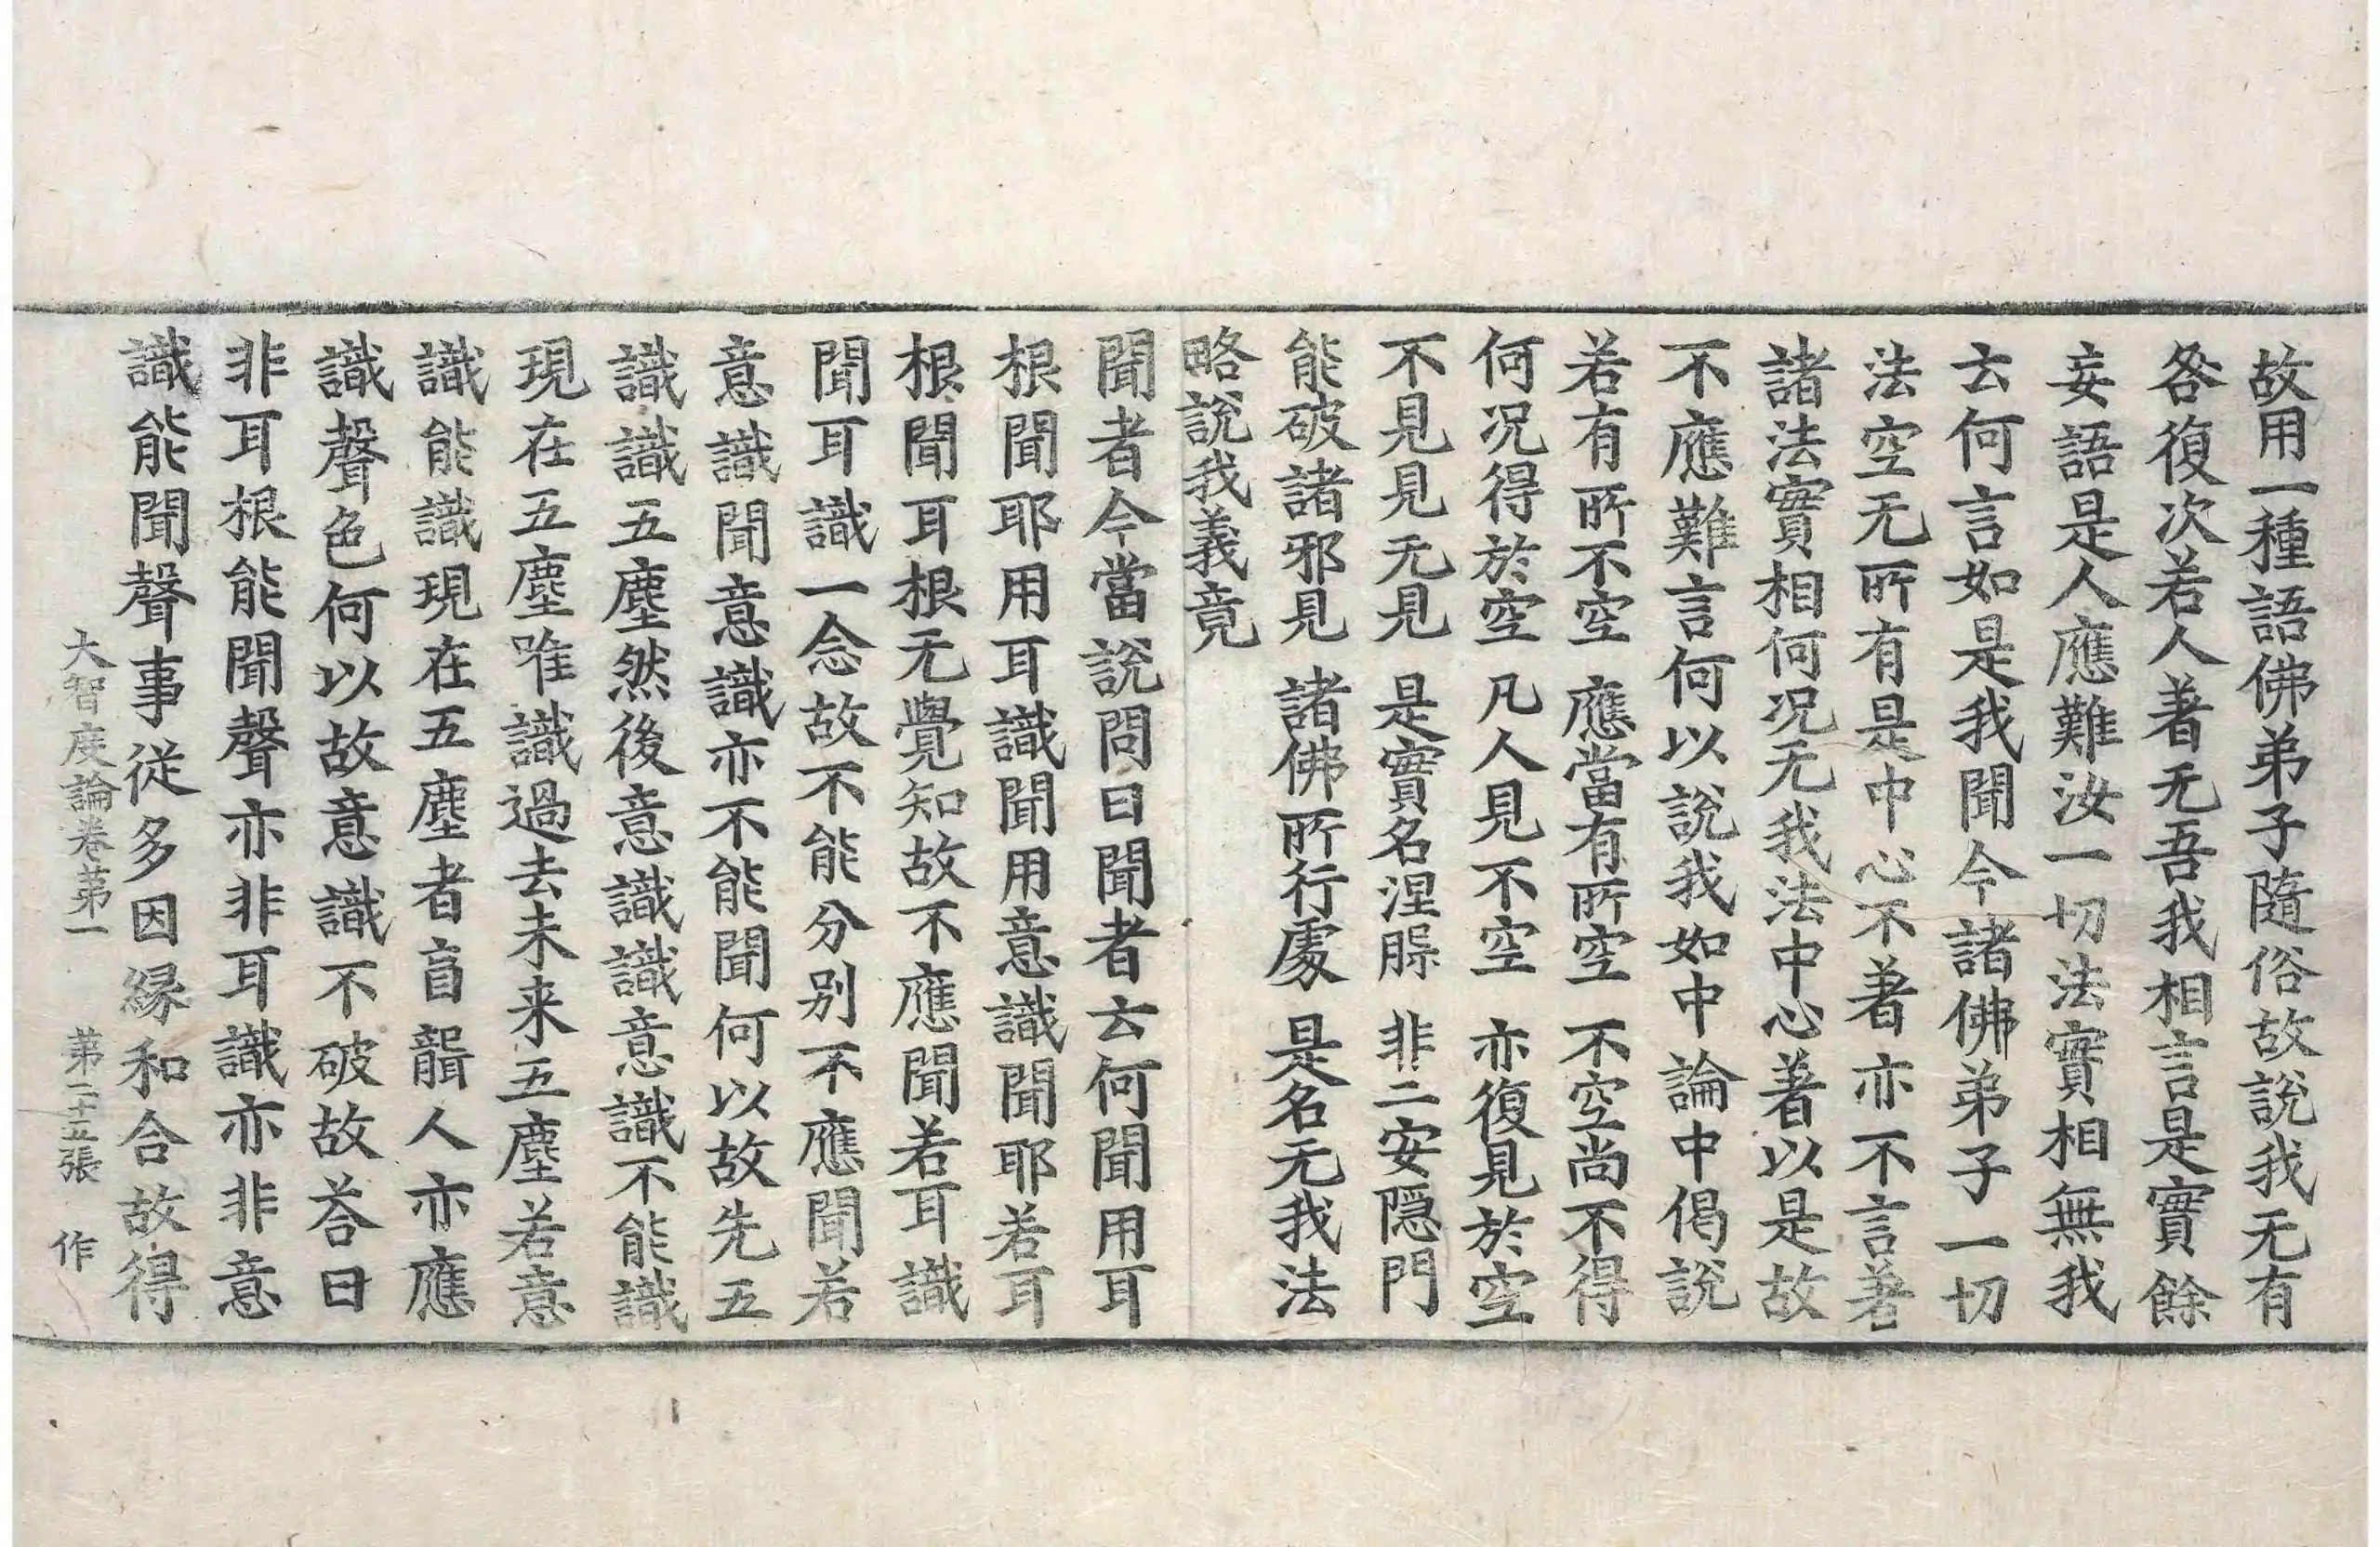 故用一種語佛弟子隨俗故說我无有
咎復次若人著无吾我相言是實餘
妄語是人應難汝一切法實相無我
云何言如是我聞今諸佛弟子一切
法空无所有是中心不著亦不言著
諸法實相何况无我法中心著以是故
不應難言何以說我如中論中偈說
若有所不空　應當有所空　不空尚不得
何况得於空　凡人見不空　亦復見於空
不見見无見　是實名涅槃　非二安隱門
能破諸邪見　諸佛所行處　是名无我法
略說我義竟
聞者今當說問曰聞者云何聞用耳
根聞耶用耳識聞用意識聞耶若耳
根聞耳根无覺知故不應聞若耳識
聞耳識一念故不能分別不應聞若
意識聞意識亦不能聞何以故先五
識識五塵然後意識識意識不能識
現在五塵唯識過去未来五塵若意
識能識現在五塵者盲聾人亦應
識聲色何以故意識不破故荅曰
非耳根能聞聲亦非耳識亦非意
識能聞聲事從多因緣和合故得
大智度論卷第一　第二十五張　作